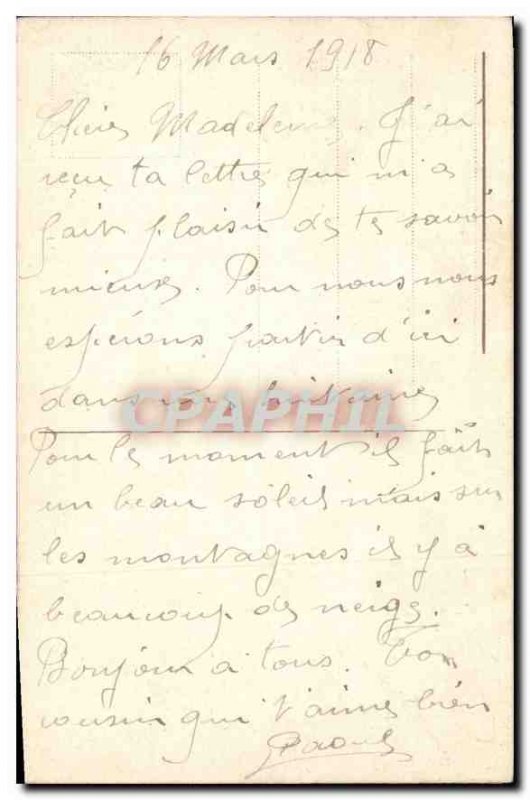 16 Mars 1918
Chère Madeleine. J'ai
reçu ta lettre qui m'a
fait plaisir de te savoir
mieux. Pour nous nous
espérons partir d'ici
dans une huitaine
CPAPHIL
Pour le moment il fait
un beau soleil mais sur
les montagnes il y a
beaucoup de neige.
Bonjour à tous. Ton
cousin qui t'aime bien
Raoul